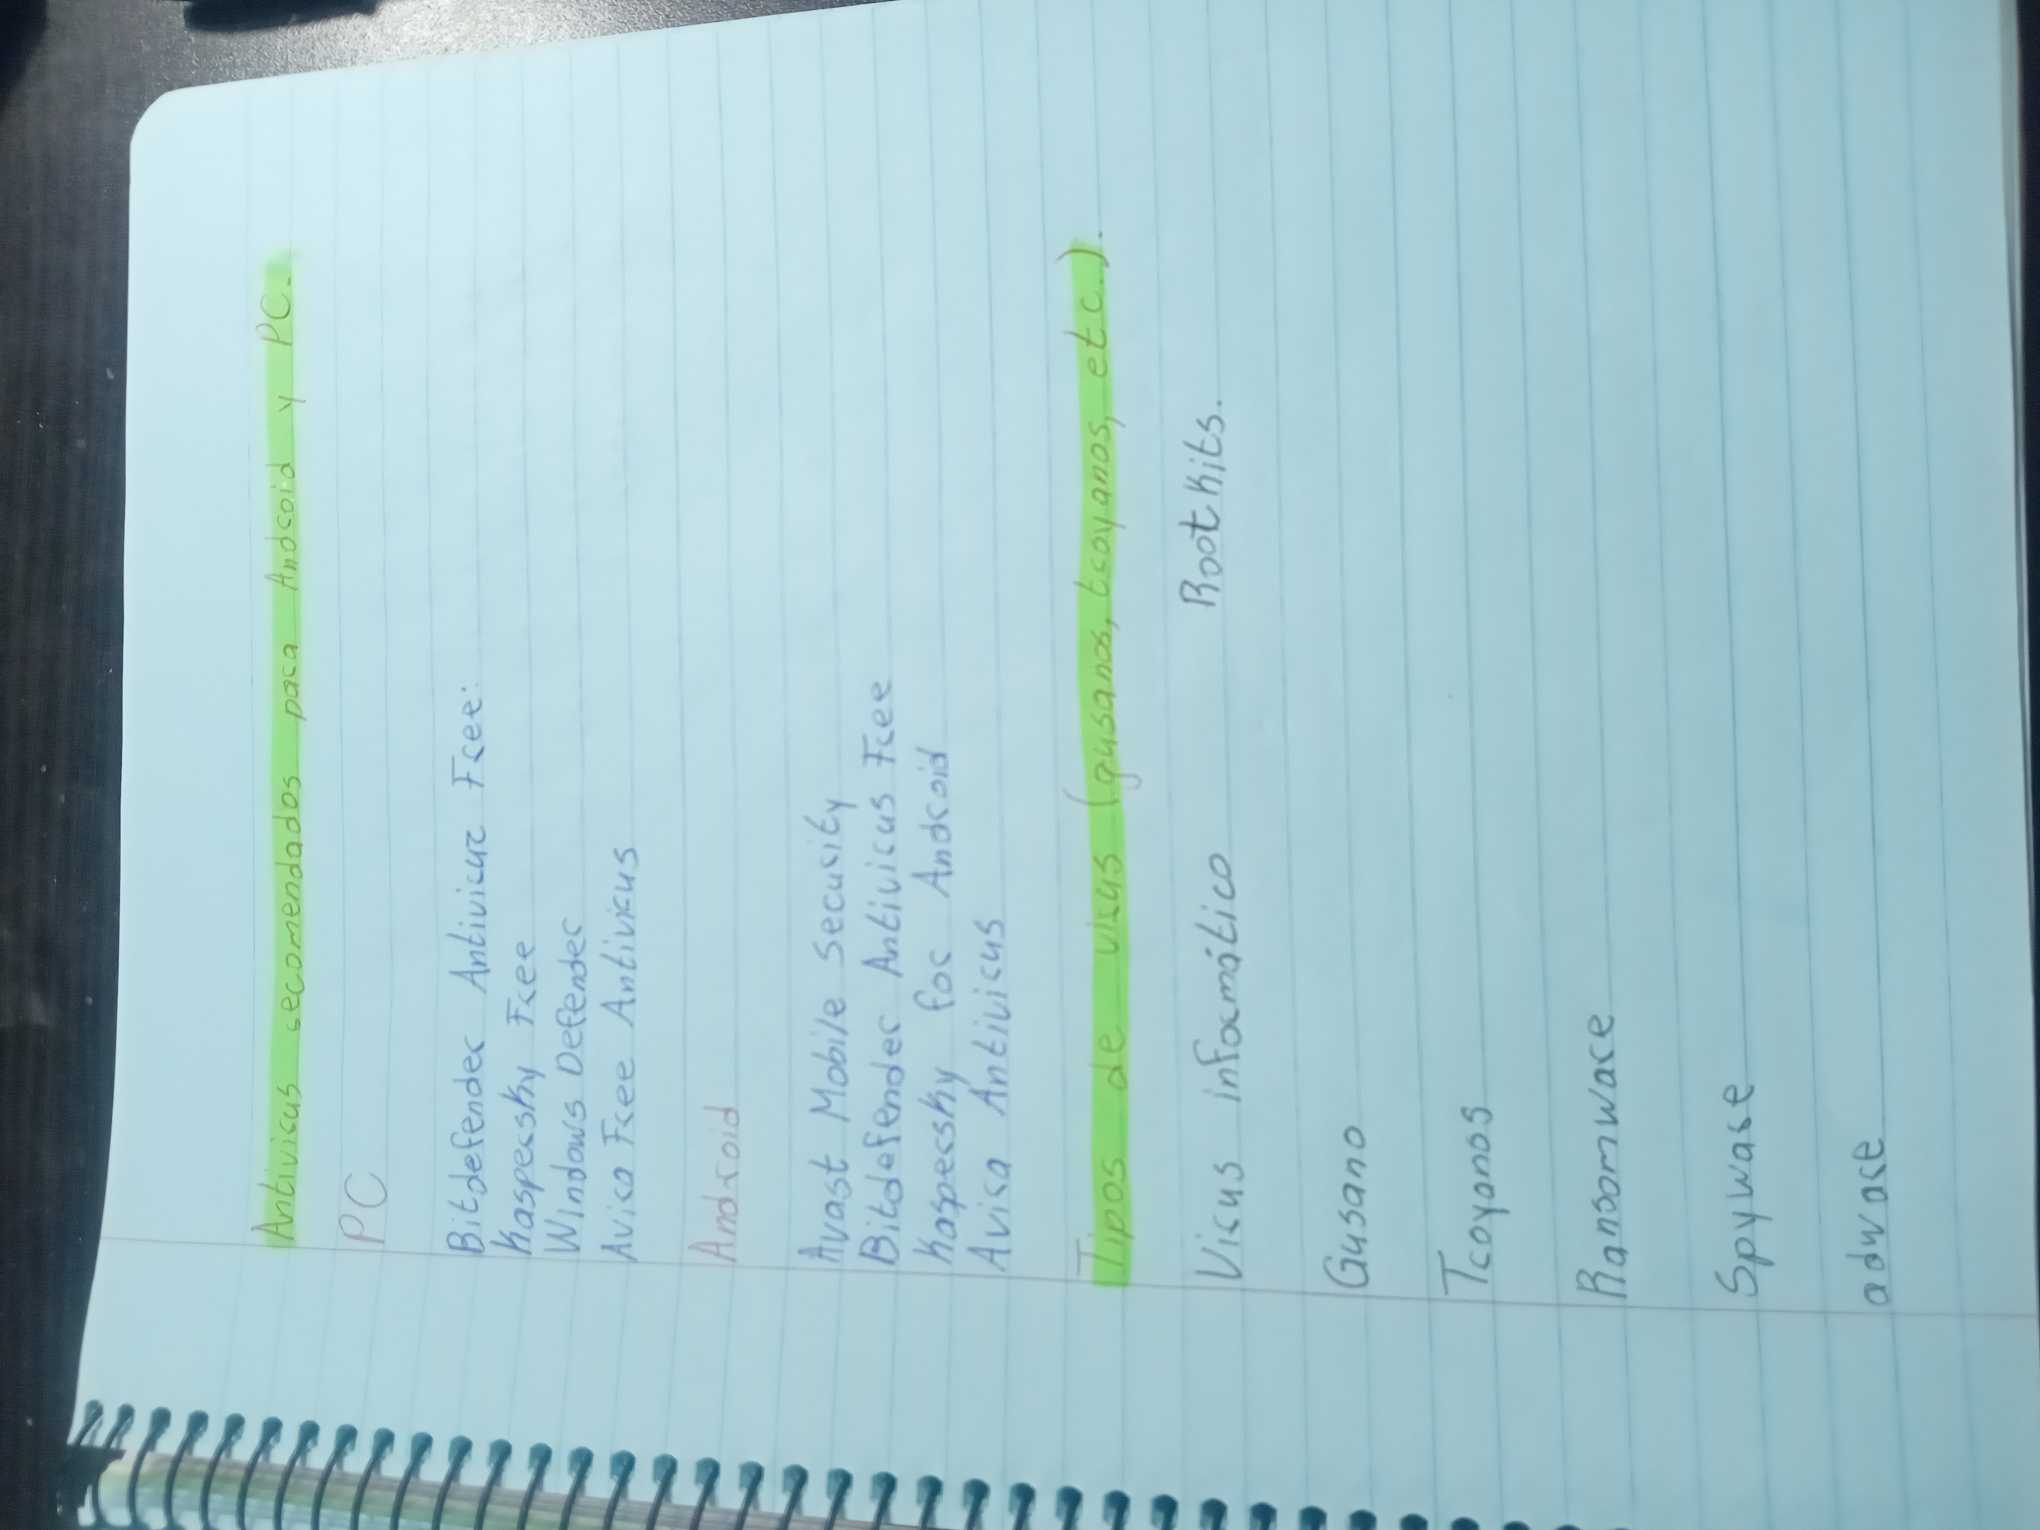 Antivirus recomendados para Android y PC.
PC
Bitdefender Antivirur Free:
Kaspersky Free
Windows Defender
Avira Free Antivirus
Android
Avast Mobile Security
Bitdefender Antivirus Free
Kaspersky for Android
Avira Antivirus
Tipos de virus (gusanos, troyanos, etc.).
Virus informático Rootkits.
Gusano
Troyanos
Ransomware
Spyware
adware